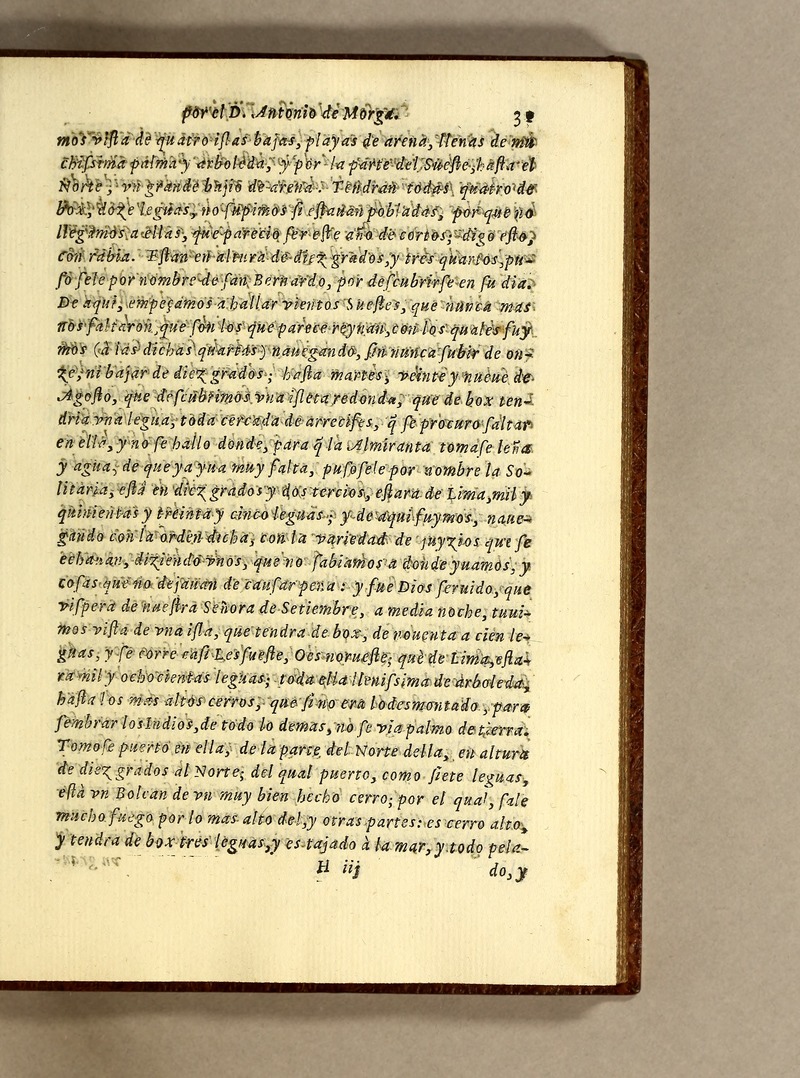 por el D. Antonio de Morga. 31
mos vista de quatro islas bajas, playas de arena, llenas de mu
chissima palma y arboleda, y por la parte del Sueste, hasta el
Norte, vn grande bajio de arena. Tendran todas quatro de
box, doze leguas, no supimos si estauan pobladas, por que no
llegamos a ellas, que parecio ser este año de cortos; digo esto,
con rabia. Estan en altura de diez grados, y tres quartos, pu-
so sele por nombre de san Bernardo, por descubrirse en su dia.
De aqui, empeçamos a hallar vientos Suestes, que nunca mas
nos faltaron, que son los que parece reynan, con los quales fuy
mos (a las dichas quartas) nauegando, sin nunca subir de on-
ze, ni bajar de diez grados; hasta martes, veinte y nueue de
Agosto, que descubrimos vna isleta redonda, que de box ten-
dria vna legua, toda cercada de arrecifes, q̃ se procuro saltar
en ella, y no se hallo donde, para q̃ la Almiranta tomase leña
y agua, de que ya yua muy falta, pusosele por nombre la So-
litaria, està en diez grados y dos tercios, estara de Lima, mil y
quinientas y treinta y cinco leguas; y de aqui fuymos, naue-
gando con la orden dicha, con la variedad de juyzios que se
echauan, diziendo vnos, que no sabiamos a donde yuamos, y
cosas que no dejauan de causar pena: y fue Dios seruido, que
vispera de nuestra Señora de Setiembre, a media noche, tuui-
mos vista de vna isla, que tendra de box, de nouenta a cien le-
guas, y se corre casi Lessueste, Oesnorueste; que de Lima, esta-
ra mil y ochocientas leguas; toda ella llenissima de arboleda,
hasta los mas altos cerros, que si no era lo desmontado, para
sembrar los Indios, de todo lo demas, no se via palmo de tierra.
Tomose puerto en ella, de la parte del Norte della, en altura
de diez grados al Norte; del qual puerto, como siete leguas,
està vn Bolcan de vn muy bien hecho cerro; por el qual, sale
mucho fuego por lo mas alto del, y otras partes: es cerro alto,
y tendra de box tres leguas, y es tajado à la mar, y todo pela-
H iij do, y